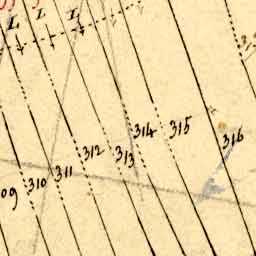 L L L
314 315 316
312 313
311
310
09